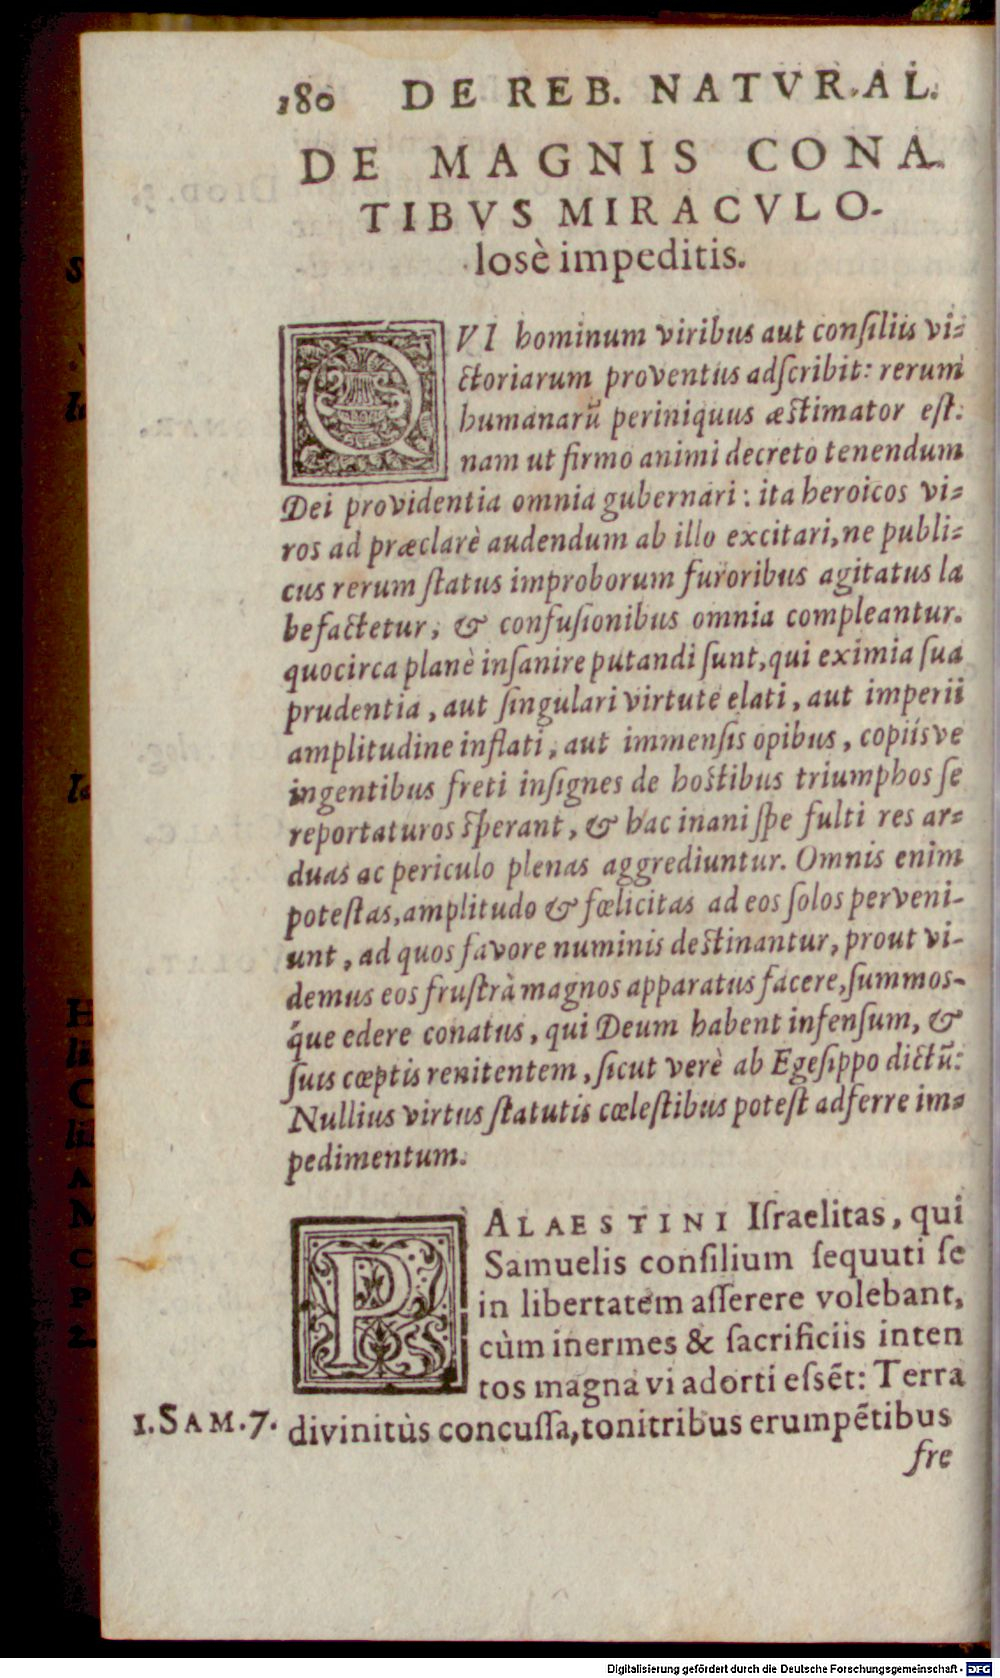 180 DE REB. NATVRAL.
DE MAGNIS CONA-
TIBVS MIRACVLO-
losè impeditis.
QVI hominum viribus aut consiliis vi-
ctoriarum proventus adscribit: rerum
humanarũ periniquus æstimator est:
nam ut firmo animi decreto tenendum
Dei providentia omnia gubernari: ita heroicos vi-
ros ad præclarè audendum ab illo excitari, ne publi-
cus rerum status improborum furoribus agitatus la
befactetur, & confusionibus omnia compleantur.
quocirca planè insanire putandi sunt, qui eximia sua
prudentia, aut singulari virtute elati, aut imperii
amplitudine inflati, aut immensis opibus, copiísve
ingentibus freti insignes de hostibus triumphos se
reportaturos sperant, & hac inani spe fulti res ar-
duas ac periculo plenas aggrediuntur. Omnis enim
potestas, amplitudo & fœlicitas ad eos solos perveni-
unt, ad quos favore numinis destinantur, prout vi-
demus eos frustrà magnos apparatus facere, summos-
q́ue edere conatus, qui Deum habent infensum, &
suis cœptis renitentem, sicut verè ab Egesippo dictũ:
Nullius virtus statutis cœlestibus potest adferre im-
pedimentum.
PALAESTINI Israelitas, qui
Samuelis consilium sequuti se
in libertatem asserere volebant,
cùm inermes & sacrificiis inten
tos magna vi adorti essẽt: Terra
1. SAM. 7. divinitùs concussa, tonitribus erumpẽtibus
fre
Digitalisierung gefördert durch die Deutsche Forschungsgemeinschaft - DFG